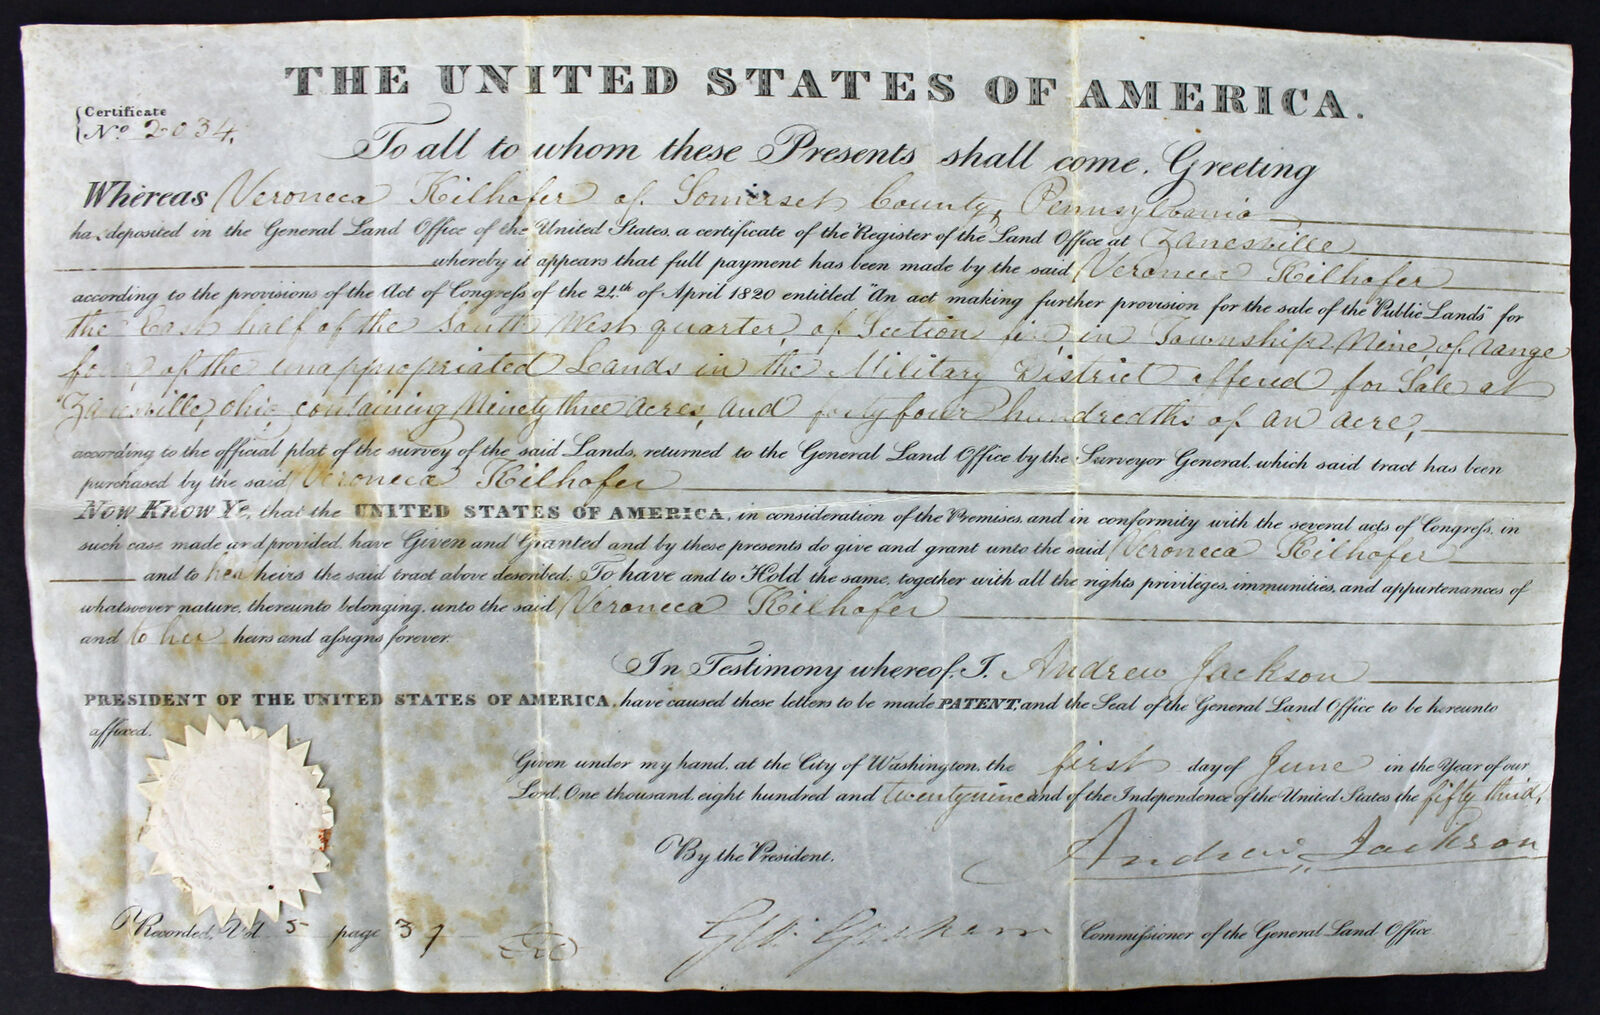 THE UNITED STATES OF AMERICA.
Certificate
No. 2034.
To all to whom these Presents shall come, Greeting
Whereas Veroneca Kilhofer of Somerset County, Pennsylvania
ha deposited in the General Land Office of the United States, a certificate of the Register of the Land Office at Zanesville
whereby it appears that full payment has been made by the said Veroneca Kilhofer
according to the provisions of the Act of Congreſs of the 24th of April 1820 entitled "An act making further provision for the sale of the Public Lands" for
the East half of the South West quarter, of Section in Township Nine, of Range
four, of the unappropriated Lands in the Military District offered for Sale at
Zanesville, Ohio, containing Ninety three acres, and forty four hundredths of an acre,
according to the official plat of the survey of the said Lands, returned to the General Land Office by the Surveyor General, which said tract has been
purchased by the said Veroneca Kilhofer
Now Know Ye, that the UNITED STATES OF AMERICA, in consideration of the Premises, and in conformity with the several acts of Congreſs, in
such case made and provided, have Given and Granted and by these presents do give and grant unto the said Veroneca Kilhofer
and to her heirs the said tract above described: To have and to Hold the same, together with all the rights, privileges, immunities, and appurtenances of
whatsoever nature, thereunto belonging, unto the said Veroneca Kilhofer
and to her heirs and aſsigns forever.
In Testimony whereof, I, Andrew Jackson
PRESIDENT OF THE UNITED STATES OF AMERICA, have caused these letters to be made PATENT, and the Seal of the General Land Office to be hereunto
affixed.
Given under my hand, at the City of Washington, the first day of June in the Year of our
Lord, One thousand, eight hundred and twenty nine and of the Independence of the United States the fifty third,
By the President. Andrew Jackson
G W. Graham Commiſsioner of the General Land Office
Recorded, Vol. 5 page 37